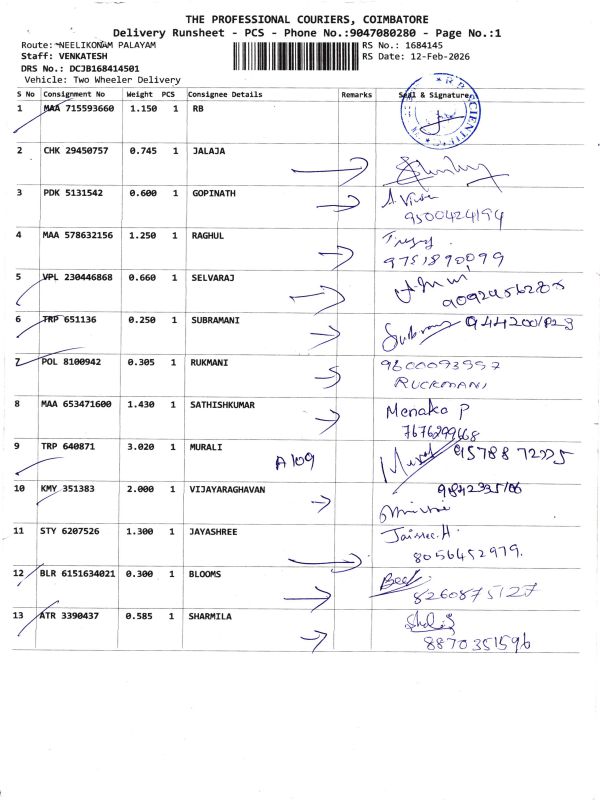 THE PROFESSIONAL COURIERS, COIMBATORE
Delivery Runsheet - PCS - Phone No.:9047080280 - Page No.:1
Route: NEELIKONAM PALAYAM
RS No.: 1684145
Staff: VENKATESH
RS Date: 12-Feb-2026
DRS No.: DCJB168414501
Vehicle: Two Wheeler Delivery
S No Consignment No Weight PCS Consignee Details Remarks Seal & Signature
1 MAA 715593660 1.150 1 RB
2 CHK 29450757 0.745 1 JALAJA
3 PDK 5131542 0.600 1 GOPINATH
9500424194
4 MAA 578632156 1.250 1 RAGHUL
9751890099
5 VPL 230446868 0.660 1 SELVARAJ
6 TRP 651136 0.250 1 SUBRAMANI
7 POL 8100942 0.305 1 RUKMANI
9600093997
RUCKMANI
8 MAA 653471600 1.430 1 SATHISHKUMAR Menaka P
7676299668
9 TRP 640871 3.020 1 MURALI
A 109
10 KMY 351383 2.000 1 VIJAYARAGHAVAN
11 STY 6207526 1.300 1 JAYASHREE Jaisree.H
8056452979.
12 BLR 6151634021 0.300 1 BLOOMS
8260875127
13 ATR 3390437 0.585 1 SHARMILA
8870351596